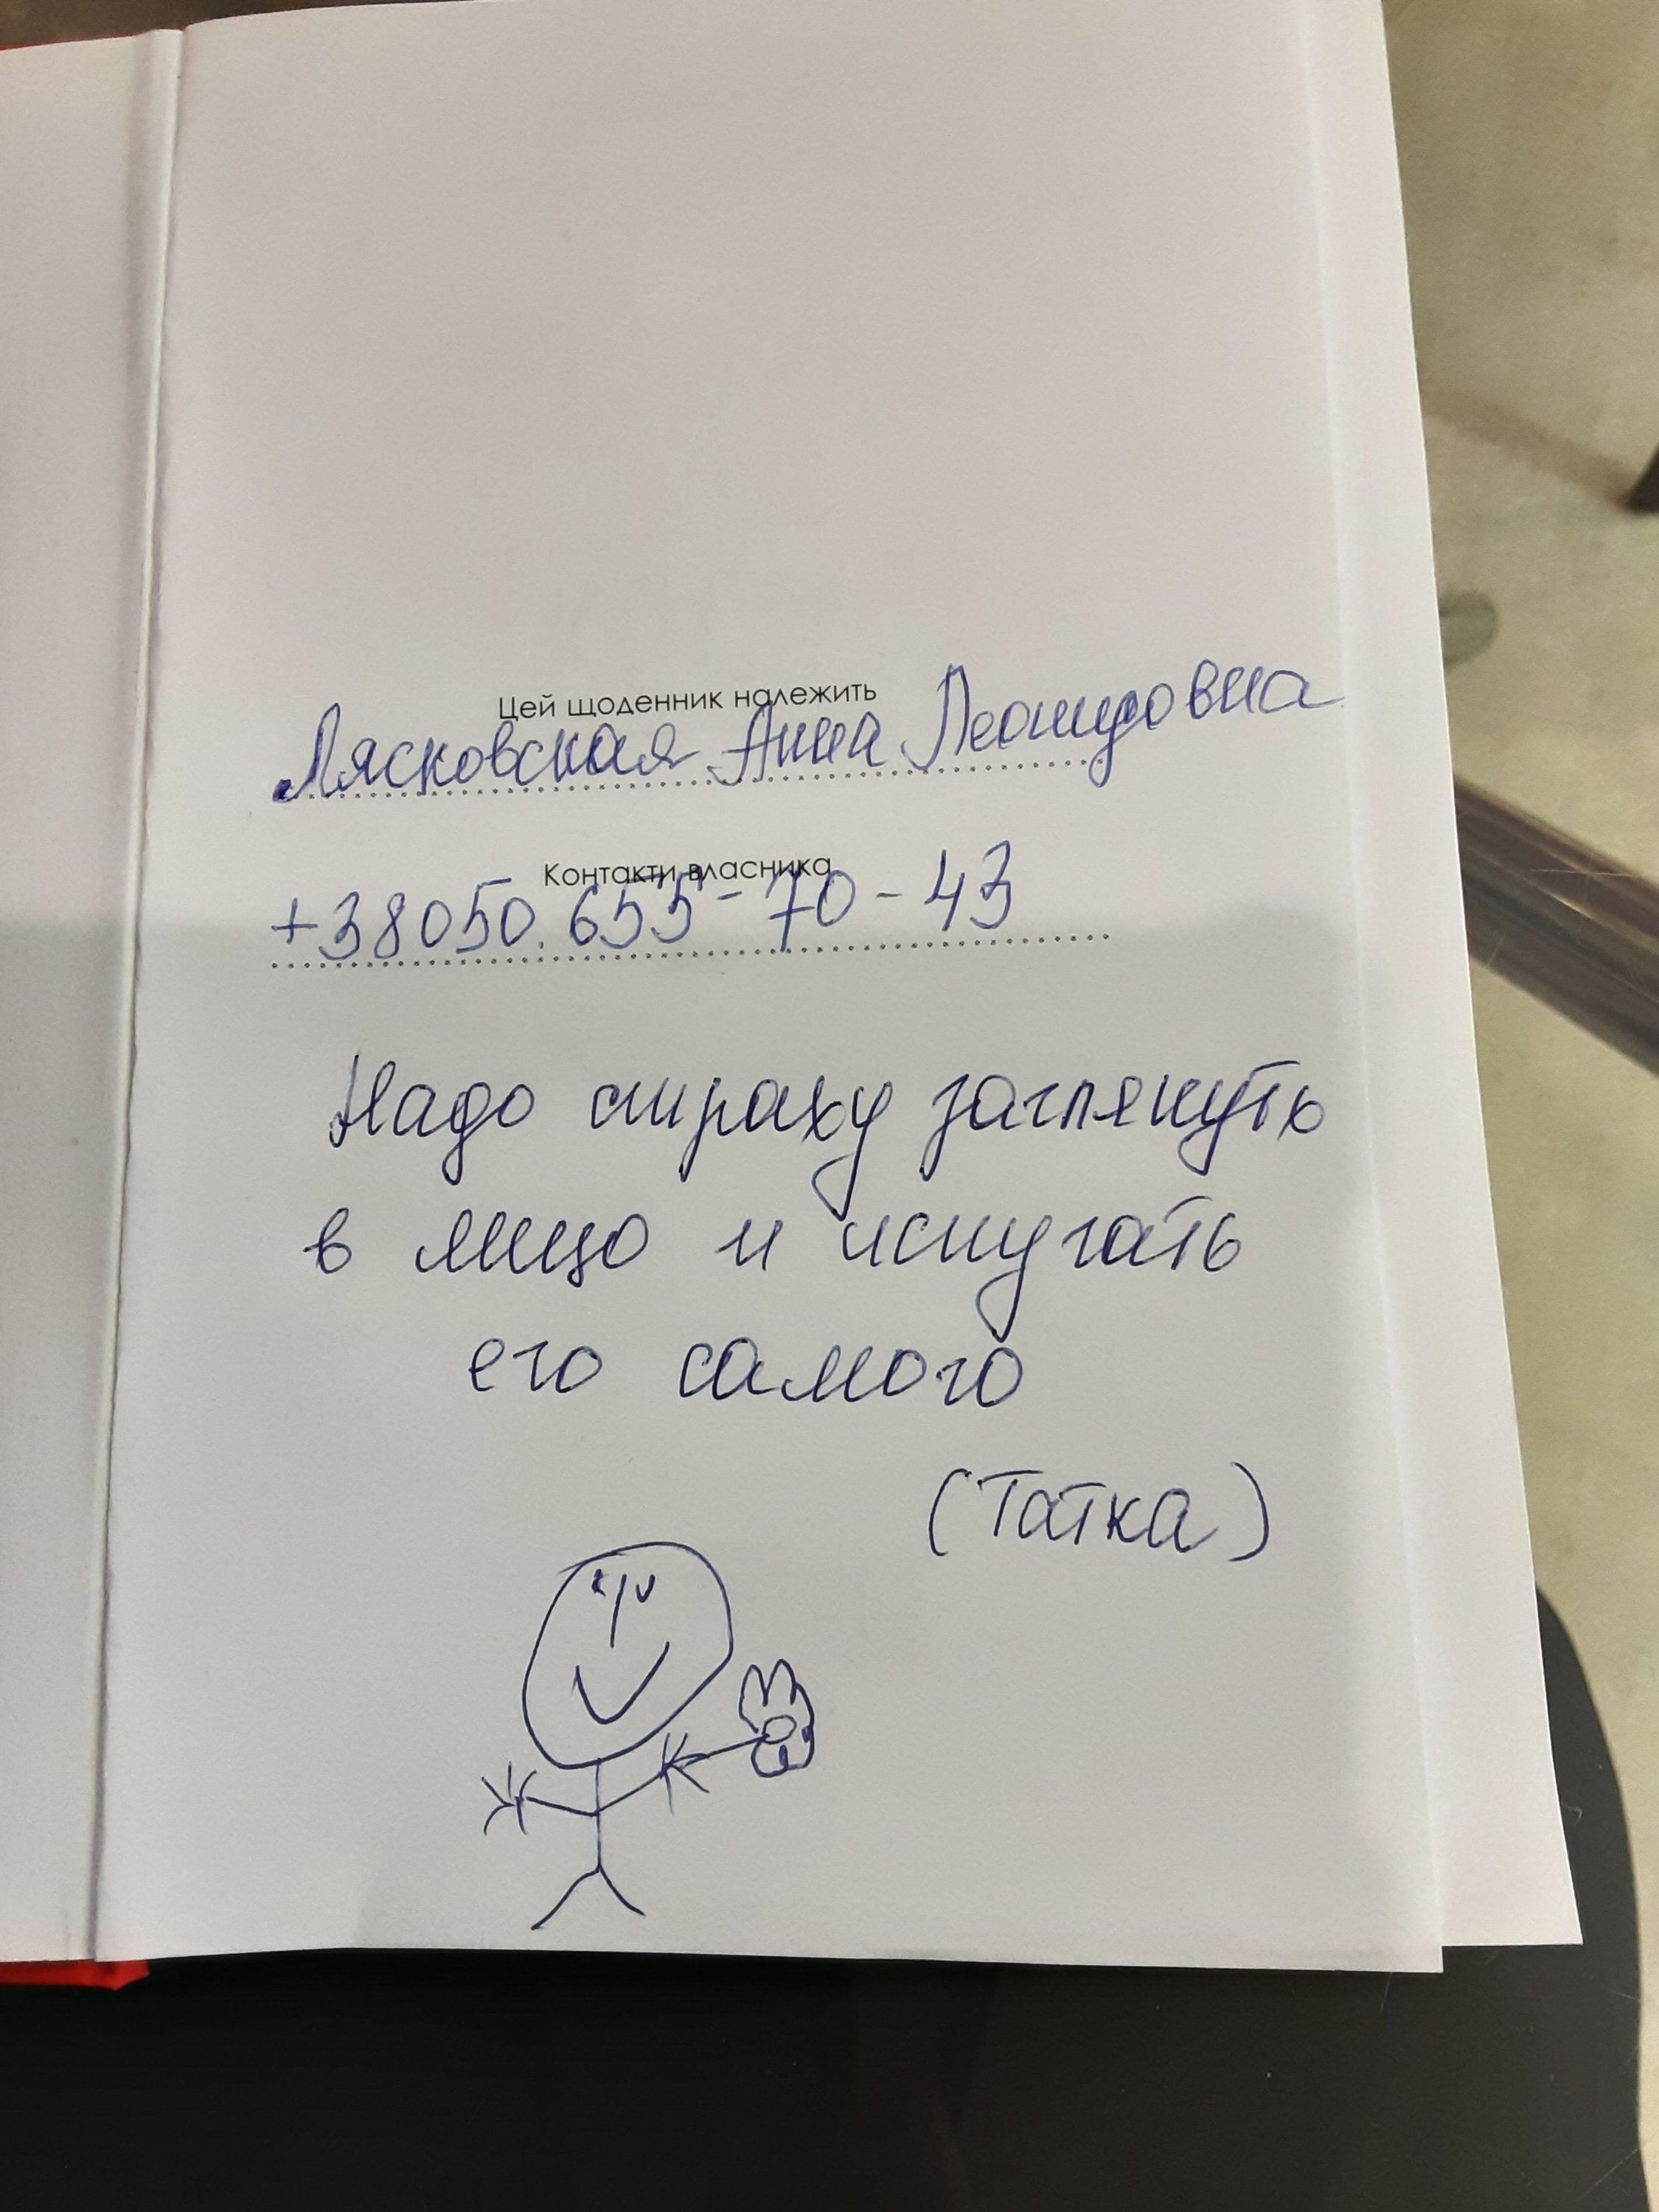 Цей щоденник належить
Лясковская Анна Леонидовна
Контакти власника
+38050.655-70-43
Надо страху заглянуть
в лицо и испугать
его самого
(Татка)